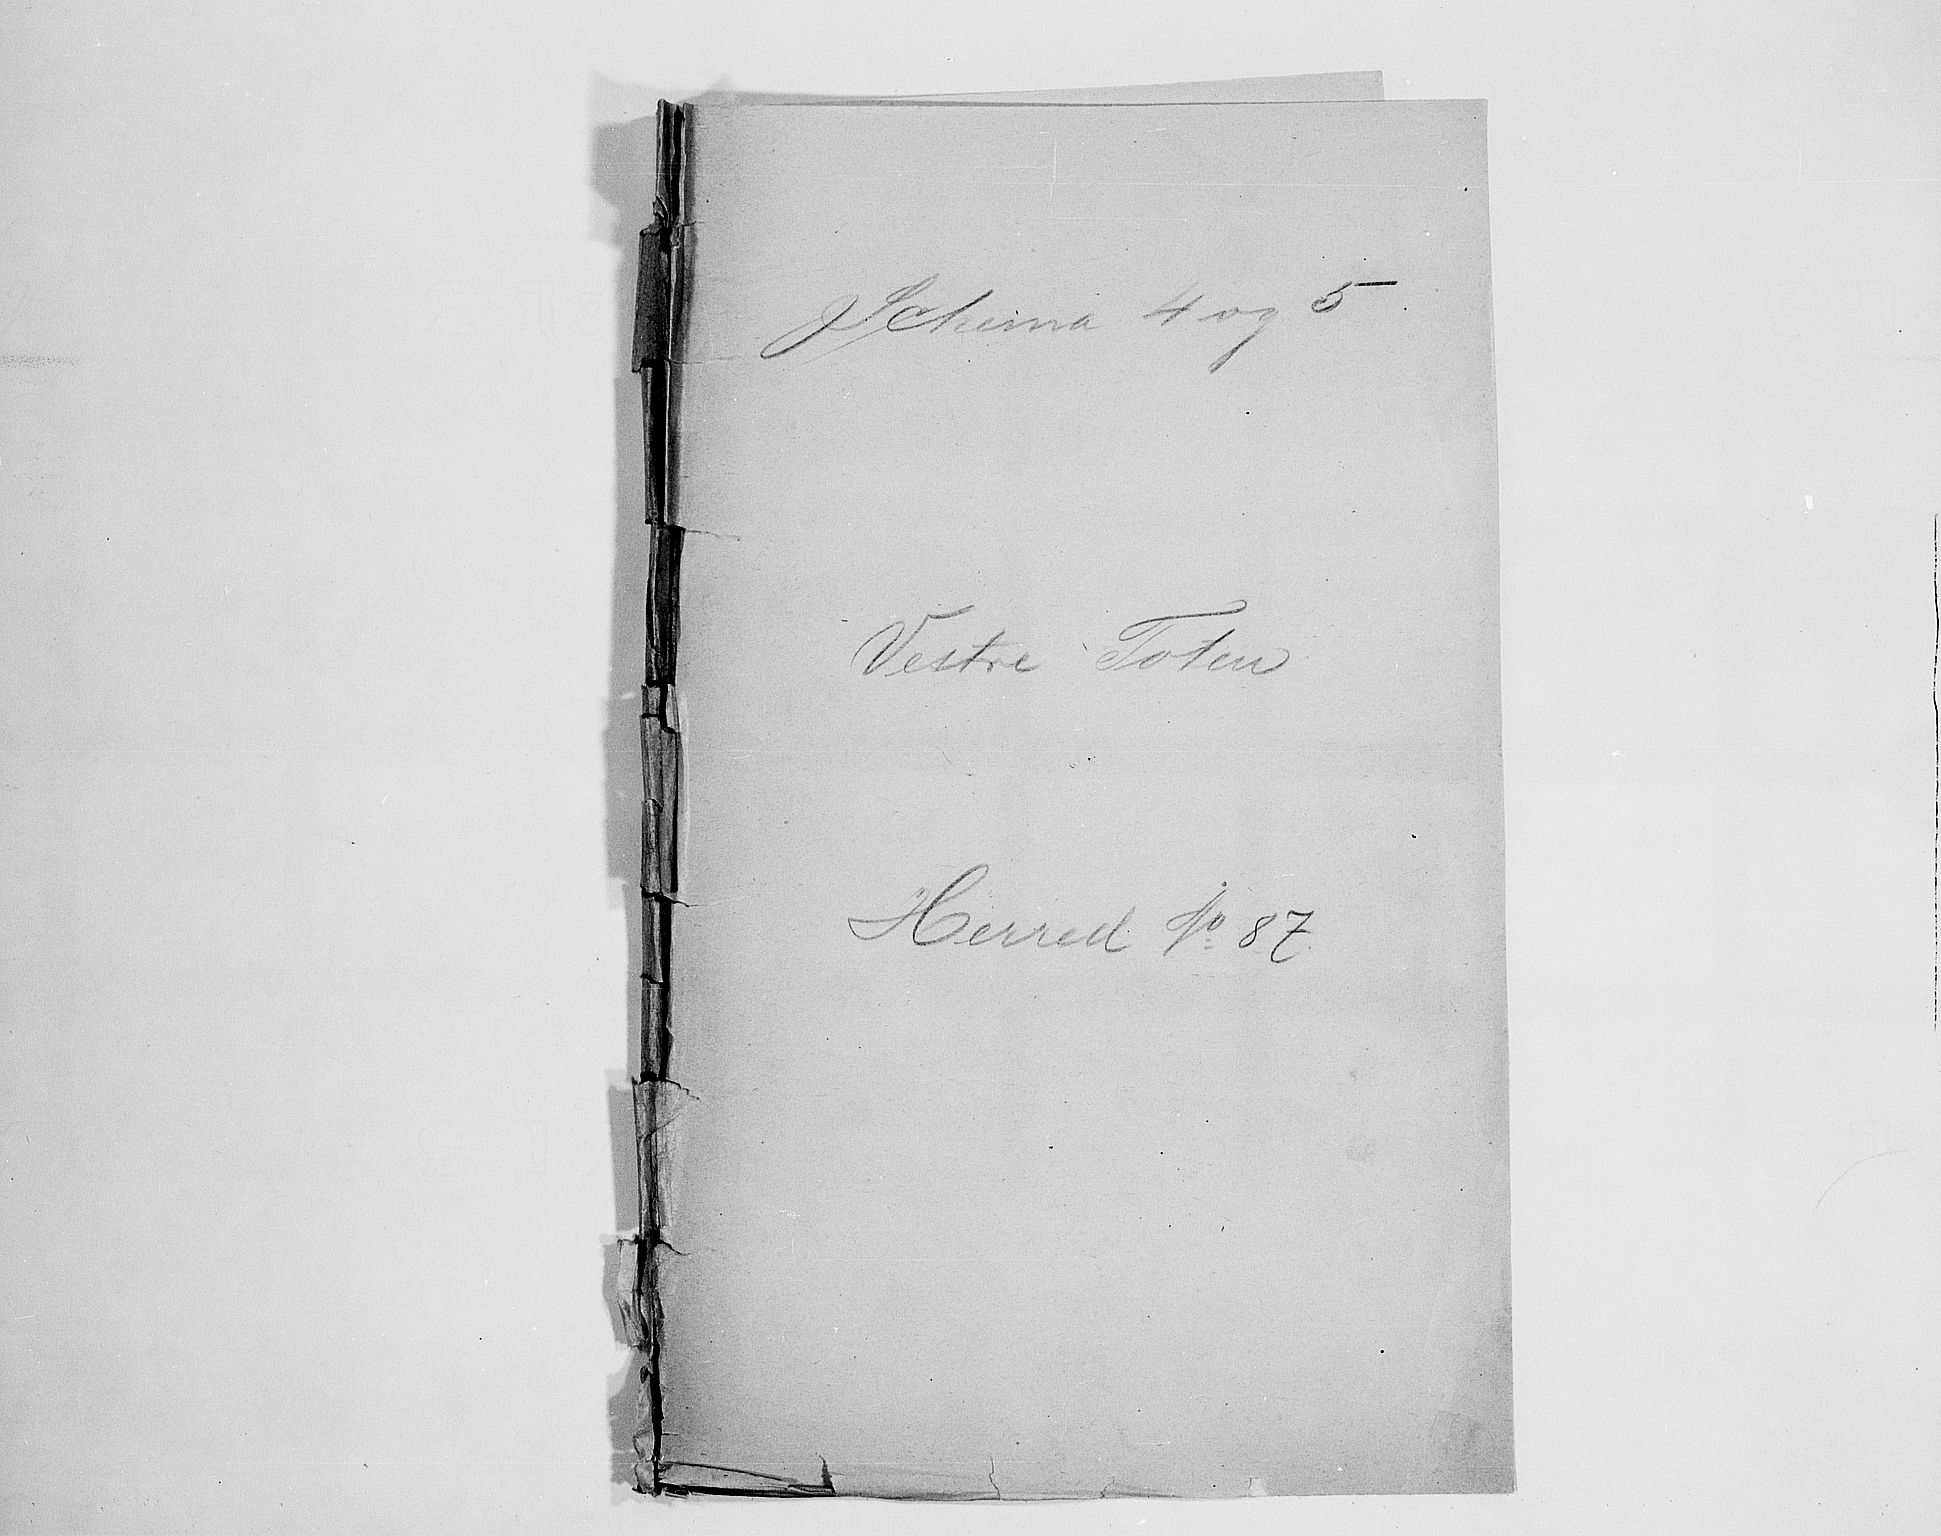 Schema 4 og 5
Vestre Toten
Herred No 87